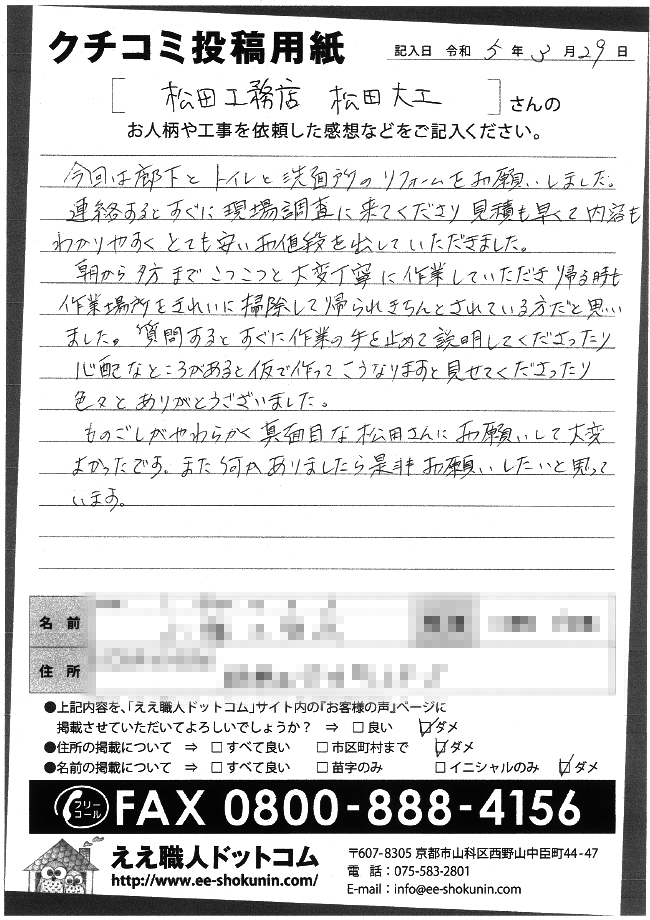 クチコミ投稿用紙
記入日 令和 5 年 3 月 29 日
[ 松田工務店 松田大工 ] さんの
お人柄や工事を依頼した感想などをご記入ください。
今回は廊下とトイレと洗面所のリフォームをお願いしました。
連絡するとすぐに現場調査に来てくださり見積も早くて内容も
わかりやすくとても安いお値段を出していただきました。
朝から夕方までこつこつと大変丁寧に作業していただき帰る時も
作業場所をきれいに掃除して帰られきちんとされている方だと思い
ました。質問するとすぐに作業の手を止めて説明してくださったり
心配なところがあると仮で作ってこうなりますと見せてくださったり
色々とありがとうございました。
ものごしがやわらかく真面目な松田さんにお願いして大変
よかったです。また何かありましたら是非お願いしたいと思って
います。
名前
住所
●上記内容を、「ええ職人ドットコム」サイト内の『お客様の声』ページに
掲載させていただいてよろしいでしょうか? ⇒ □良い ☑ダメ
●住所の掲載について ⇒ □すべて良い □市区町村まで ☑ダメ
●名前の掲載について ⇒ □すべて良い □苗字のみ □イニシャルのみ ☑ダメ
フリーコール FAX 0800-888-4156
ええ職人ドットコム
http://www.ee-shokunin.com/
〒607-8305 京都市山科区西野山中臣町44-47
電 話:075-583-2801
E-mail:info@ee-shokunin.com